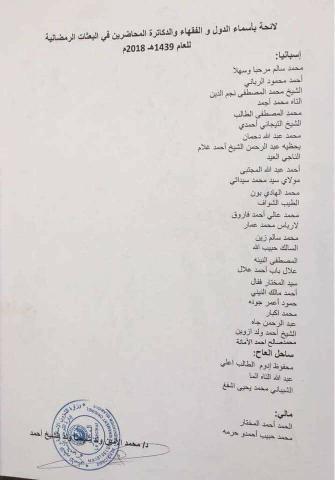 لائحة بأسماء الدول و الفقهاء والدكاترة المحاضرين في البعثات الرمضانية
للعام 1439هـ- 2018م
إسبانيا:
محمد سالم مرحبا وسهلا
أحمد محمود الرباني
الشيخ محمد المصطفي نجم الدين
التاه محمد أجمد
محمد المصطفي الطالب
الشيخ التيجاني أحمدي
محمد عبد الله دحمان
يحظيه عبد الرحمن الشيخ أحمد غلام
الناجي العيد
أحمد عبد الله المجتبى
مولاي سيد محمد سيداتي
محمد الهادي بون
الطيب الشواف
محمد عالي أحمد فاروق
لارباس محمد عمار
محمد سالم زين
السالك حبيب الله
المصطفي النينه
علال باب أحمد علال
سيد المختار فقال
أحمد مالك النيني
حمود أعمر جوده
محمد اكبار
عبد الرحمن جاه
الشيخ أحمد ولد ازوين
محمد صالح احمد الأمانة
ساحل العاج:
محفوظ إدوم الطالب اعلي
عبد الله التاه اتما
الشيباني محمد يحيى الفغ
مالي:
الحمد أحمد المختار
محمد حبيب أحمدو حرمه
د/ محمد الأمين ولد الشيخ أحمد